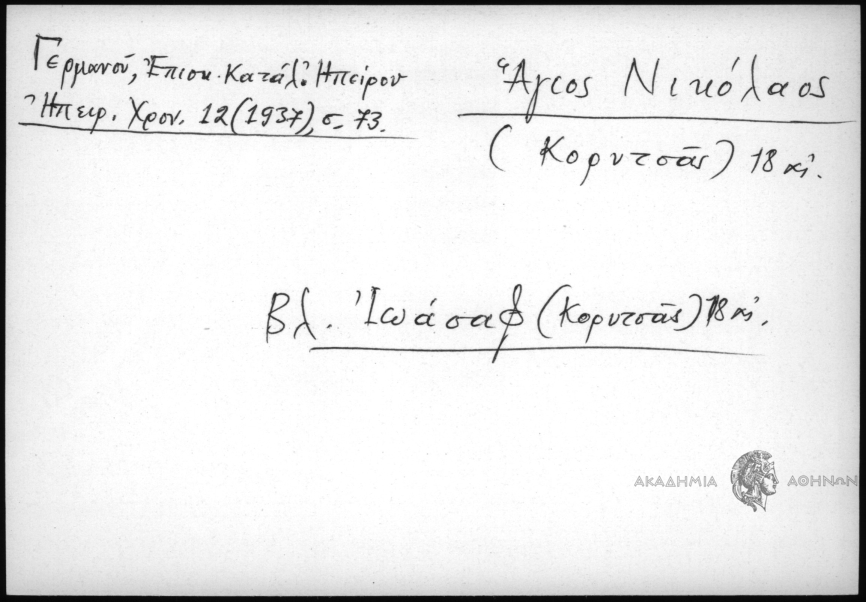 Γερμανού, Ἐπισκ. Κατάλ. Ἠπείρου
Ἠπειρ. Χρον. 12 (1937), σ. 73.
Ἅγιος Νικόλαος
(Κορυτσᾶς) 18 αἰ.
Βλ. Ἰωάσαφ (Κορυτσᾶς) 18 αἰ.
ΑΚΑΔΗΜΙΑ ΑΘΗΝΩΝ